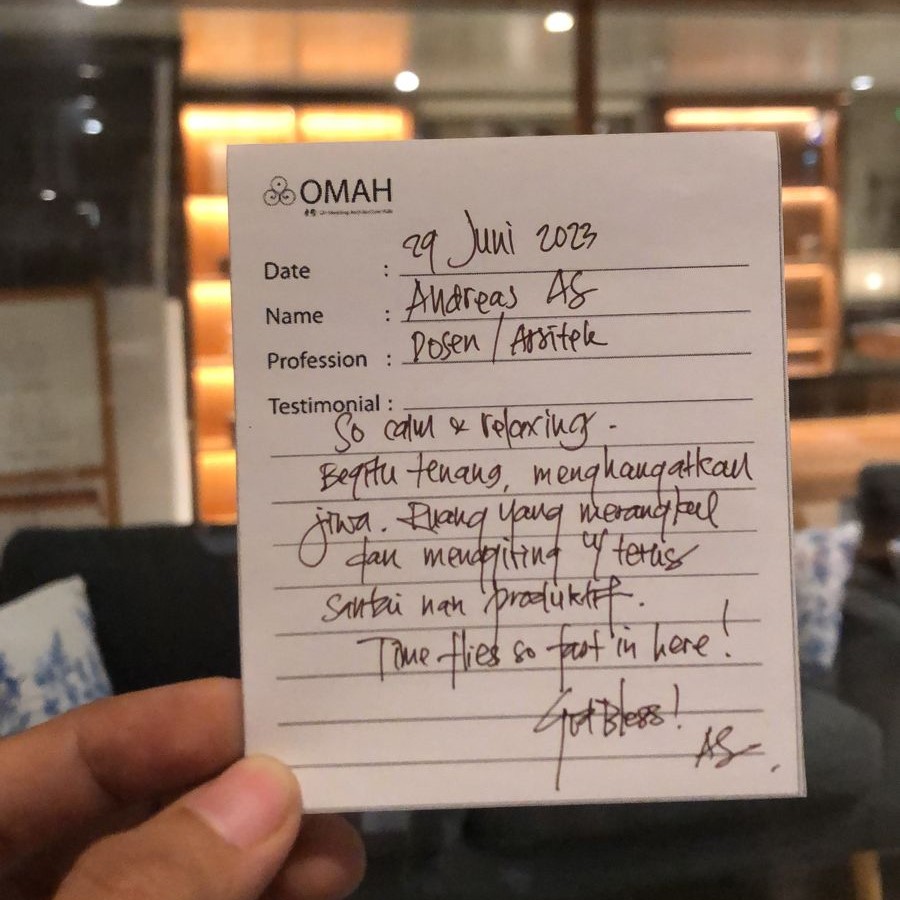 OMAH
Date : 29 Juni 2023
Name : Andreas AS
Profession : Dosen / Arsitek
Testimonial :
So calm & relaxing.
Begitu tenang, menghangatkan
jiwa. Ruang yang merangkul
dan menggiring u/ terus
santai nan produktif.
Time flies so fast in here!
God Bless!
AS